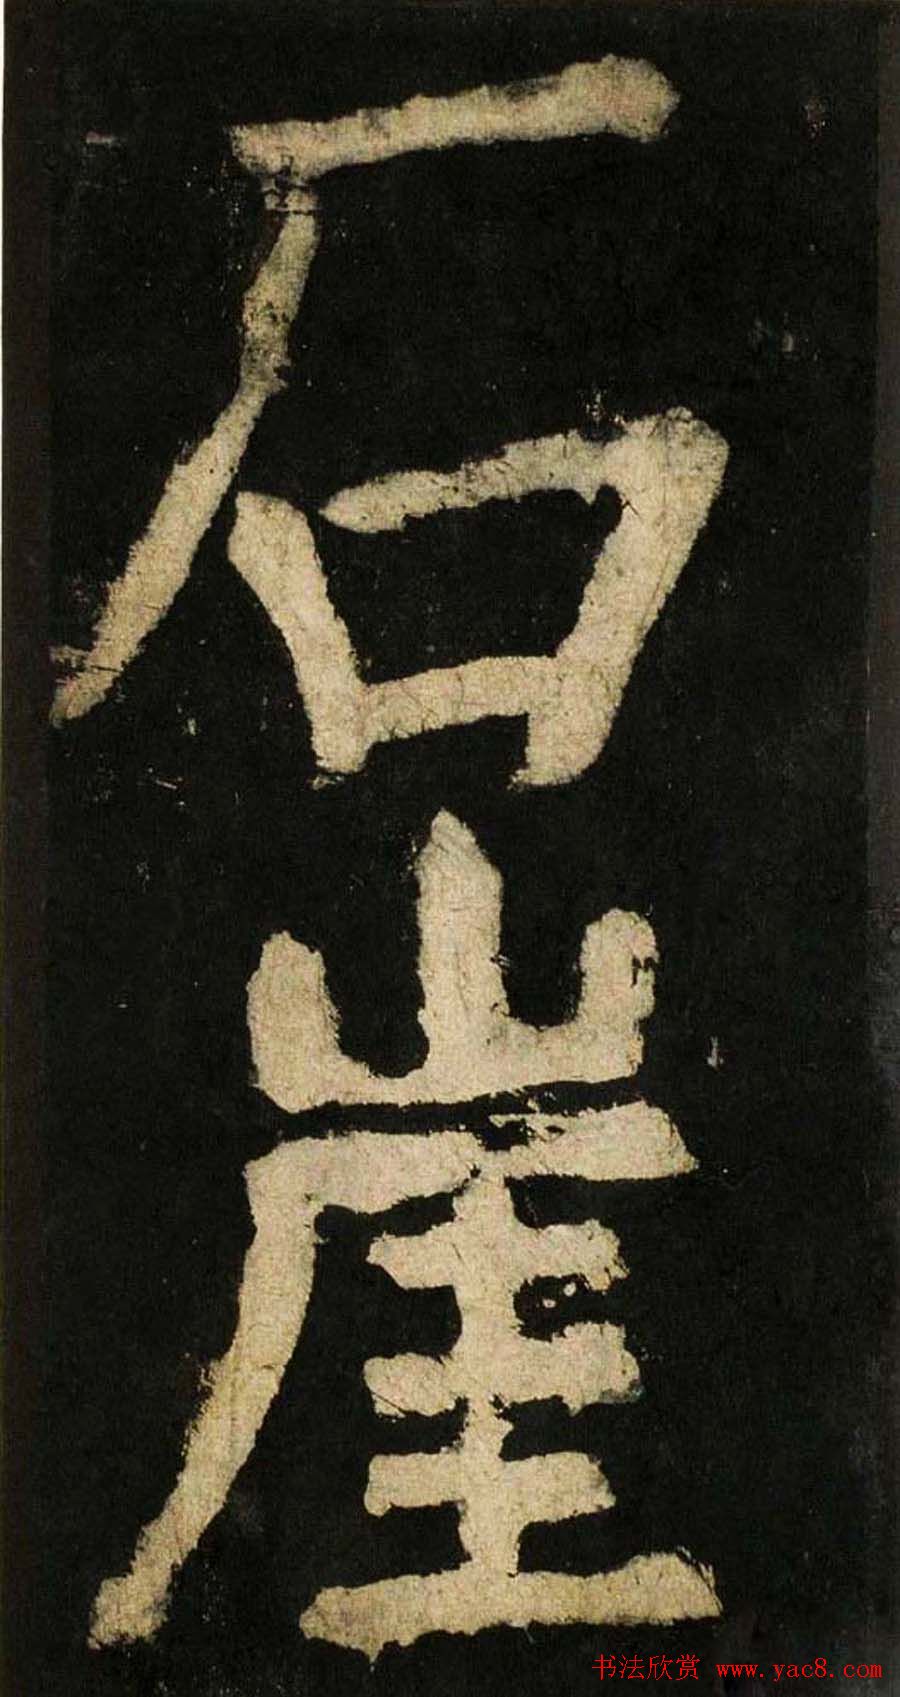 石
崖
书法欣赏 www.yac8.com